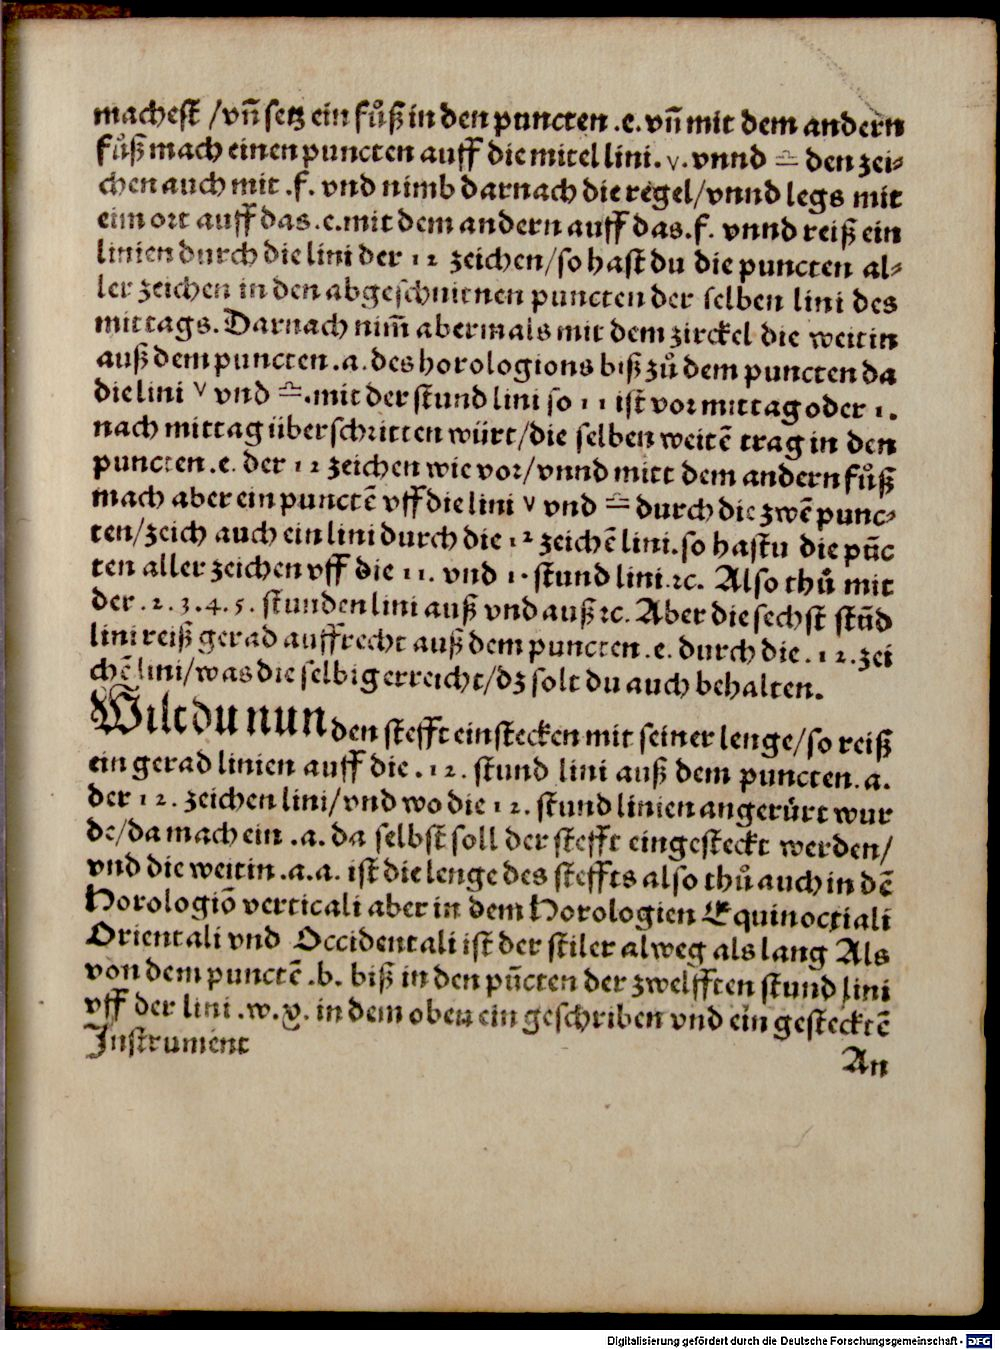 machest /vñ setz ein fůß in den puncten .e. vñ mit dem andern
fůß mach einen puncten auff die mitel lini. ♈︎. vnnd ♎︎ den zei⸗
chen auch mit .f. vnd nimb darnach die regel/vnnd legs mit
eim ort auff das .e. mit dem andern auff das .f. vnnd reiß ein
linien durch die lini der 12 zeichen/so hast du die puncten al⸗
ler zeichen in den abgeschnitnen puncten der selben lini des
mittags. Darnach nim̃ abermals mit dem zirckel die weitin
auß dem puncten .a. des horologions biß zů dem puncten da
die lini ♈︎ vnd ♎︎. mit der stund lini so 11 ist vor mittag oder 1.
nach mittag überschritten würt/die selben weitē trag in den
puncten .e. der 12 zeichen wie vor/vnnd mitt dem andern fůß
mach aber ein punctē vff die lini ♈︎ vnd ♎︎ durch die zwē punc⸗
ten/zeich auch ein lini durch die 12 zeichē lini. so hastu die pūc
ten aller zeichen vff die 11. vnd 1. stund lini. ꝛc. Also thů mit
der .2.3.4.5. stunden lini auß vnd auß ꝛc. Aber die sechst stūd
lini reiß gerad auffrecht auß dem puncten .e. durch die .12. zei
chē lini/was die selbig erreicht/dz solt du auch behalten.
Wilt du nun den stefft einstecken mit seiner lenge/so reiß
ein gerad linien auff die .12. stund lini auß dem puncten. a.
der 12. zeichen lini/vnd wo die 12. stund linien angerůrt wur
de/da mach ein .a. da selbst soll der stefft eingesteckt werden/
vnd die weitin .a.a. ist die lenge des steffts also thů auch in dē
Horologiō verticali aber in dem Horologien Equinoctiali
Orientali vnd Occidentali ist der stiler alweg als lang Als
von dem punctē .b. biß in den pūcten der zwelfften stund lini
vff der lini .w.y. in dem oben ein geschriben vnd ein gestecktē
Instrument
An
Digitalisierung gefördert durch die Deutsche Forschungsgemeinschaft - DFG